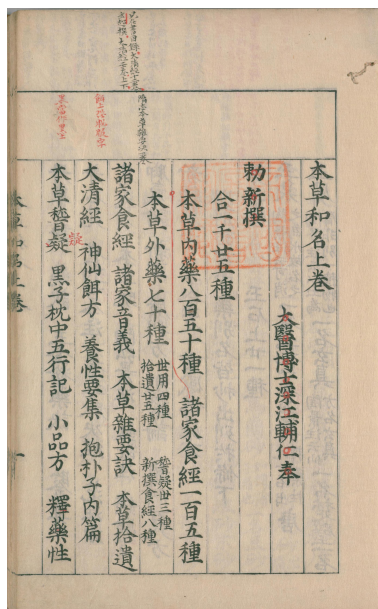 本草和名上卷
大醫博士深江輔仁奉
勅新撰
合一千廿五種
本草内藥八百五十種 諸家食經一百五種
本草外藥七十種 丗用四種 拾遺廿五種 稽疑丗三種 新撰食經八種
諸家食經 諸家音義 本草雜要訣 本草拾遺
大清經 神仙餌方 養性要集 抱朴子内篇
本草稽疑 黒子枕中五行記 小品方 釋藥性
疑
本草和名上卷 一